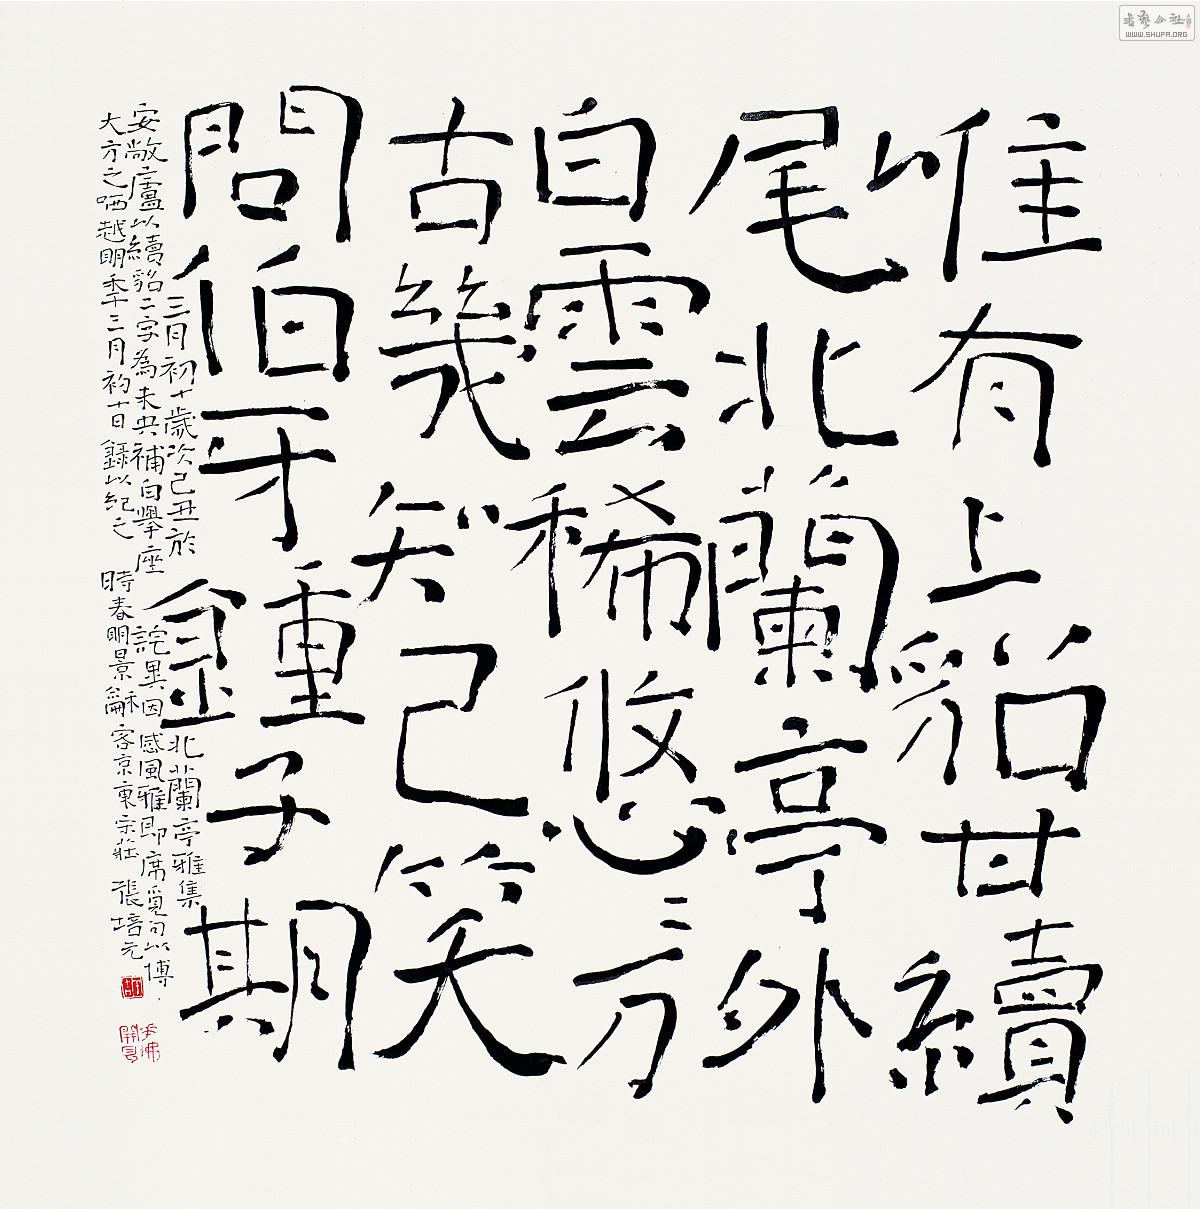 唯有上貂甘續
尾北蘭亭外
白雲稀悠〻方
古幾知己笑
問伯牙鍾子期
三月初十歲次己丑於北蘭亭雅集
安敞廬以續貂二字為未央補白舉座詫異因感風雅即席覓句以博
大方之哂越明季三月初十日錄以紀之時春明景龢客京東宋莊張培元
書藝公社
WWW.SHUFA.ORG